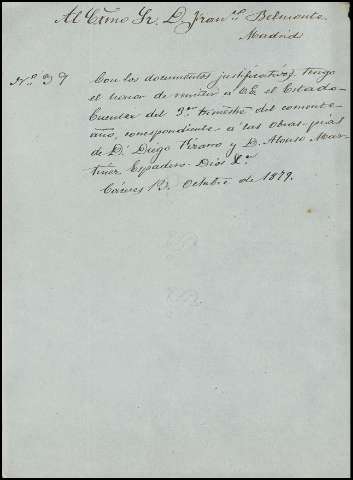 Al Exmo Sr. D. Fran.co Belmonte.
Madrid
N.º 39 Con los documentos justificativos, tengo
el honor de remitir a VE. el Estado-
Cuenta del 3.er trimestre del corriente
año, correspondiente a las obras-pias
de D. Diego y D. Alonso Mar-
tinez Espadero. Dios &.a
Cáceres 13. Octubre de 1879.